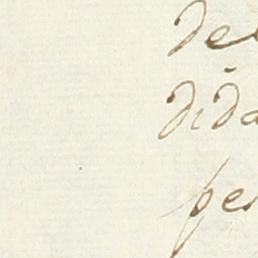 de
dida
per